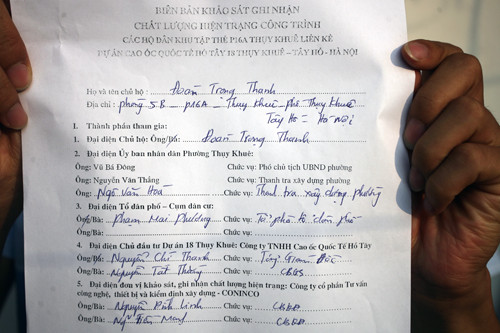 BIÊN BẢN KHẢO SÁT GHI NHẬN
CHẤT LƯỢNG HIỆN TRẠNG CÔNG TRÌNH
CÁC HỘ DÂN KHU TẬP THỂ P16A THỤY KHUÊ LIỀN KỀ
DỰ ÁN CAO ỐC QUỐC TẾ HỒ TÂY 18 THỤY KHUÊ – TÂY HỒ - HÀ NỘI
Họ và tên chủ hộ : Đoàn Trọng Thanh
Địa chỉ : phòng 5B - p16A - Thụy Khuê - ph. Thụy Khuê
Tây Hồ - Hà Nội
I. Thành phần tham gia:
1. Đại diện Chủ hộ: Ông/Bố: Đoàn Trọng Thanh
2. Đại diện Ủy ban nhân dân Phường Thụy Khuê:
Ông: Vũ Bá Đông Chức vụ: Phó chủ tịch UBND phường
Ông: Nguyễn Văn Thắng Chức vụ: Thanh tra xây dựng phường
Ông: Ngô Văn Hoá Chức vụ: Thanh tra xây dựng phường
3. Đại diện Tổ dân phố – Cụm dân cư:
Ông/Bà: Phạm Mai Phương Chức vụ: Tổ phó tổ dân phố
Ông/Bà: Chức vụ:
4. Đại diện Chủ đầu tư Dự án 18 Thụy Khuê: Công ty TNHH Cao ốc Quốc Tế Hồ Tây
Ông/Bà: Nguyễn Chí Thanh Chức vụ: Tổng Giám Đốc
Ông/Bà: Nguyễn Tất Thắng Chức vụ: CBGS
5. Đại diện đơn vị khảo sát, ghi nhận chất lượng hiện trạng: Công ty cổ phần Tư vấn
công nghệ, thiết bị và kiểm định xây dựng - CONINCO
Ông/Bà: Nguyễn Linh Chức vụ:
Ông/Bà: Chức vụ: